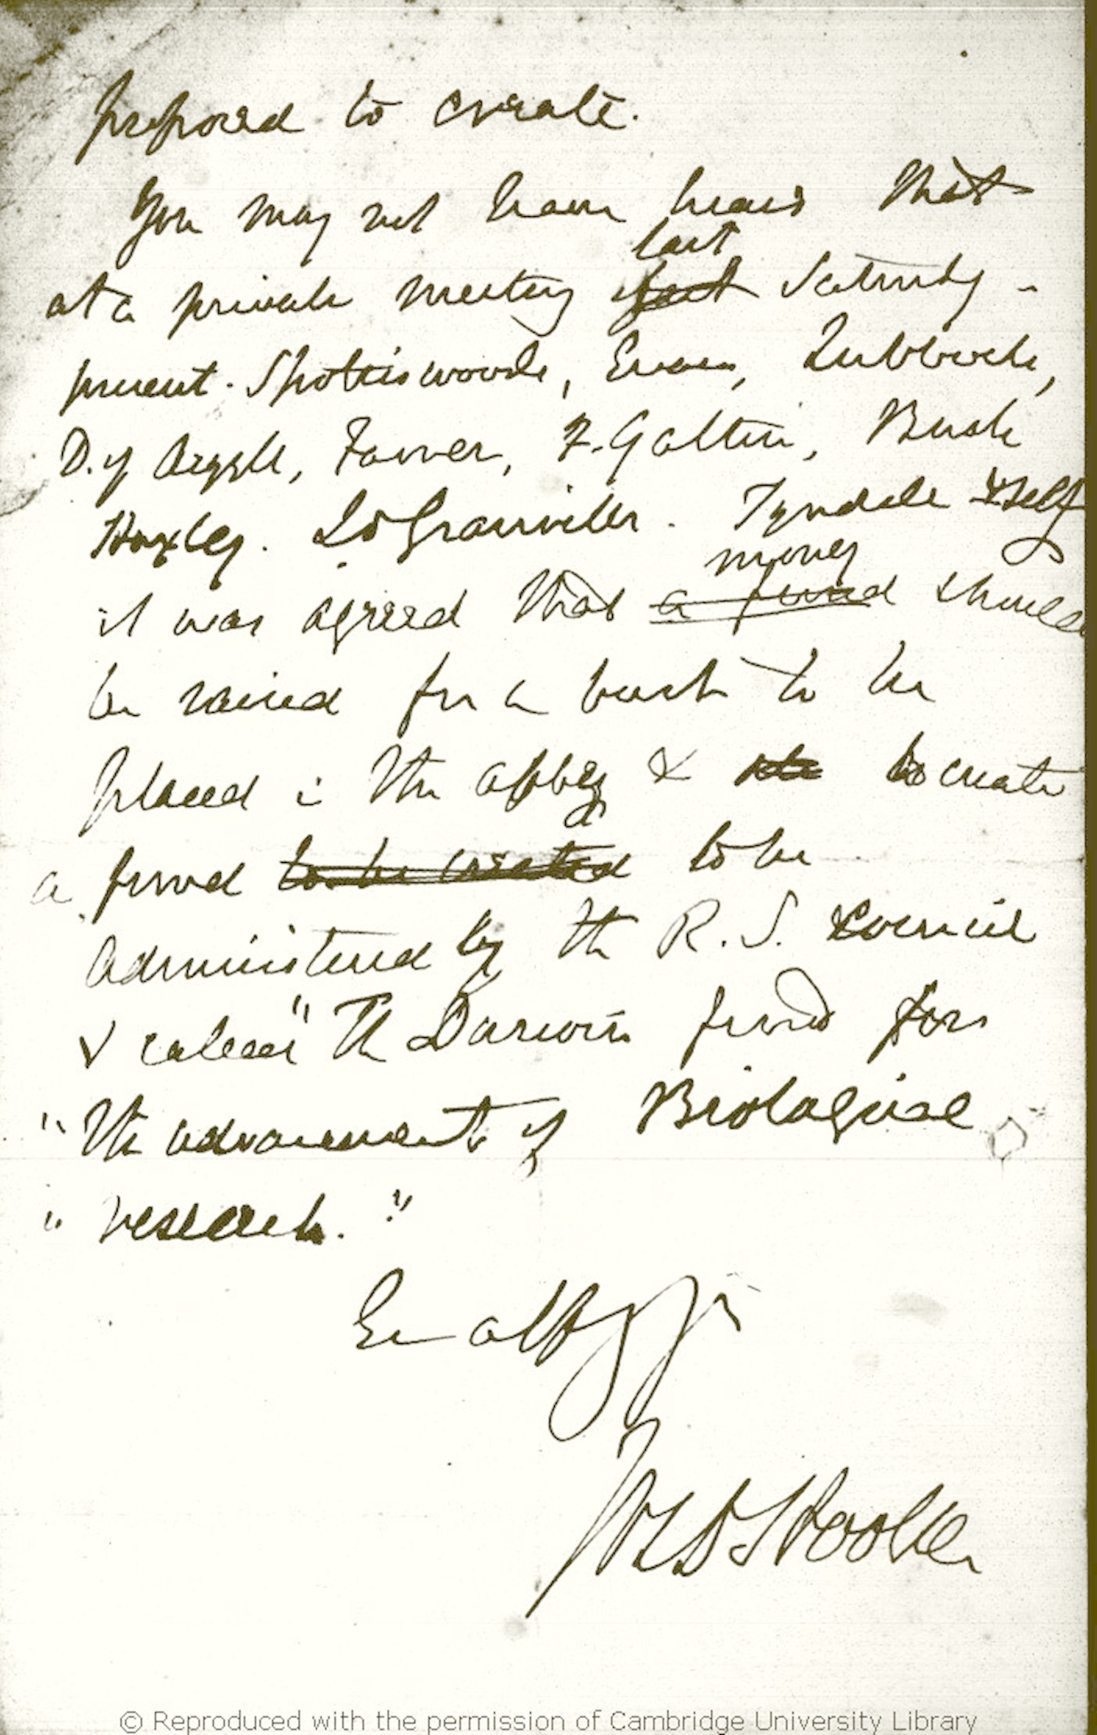 proposed to create.
You may not have heard that
last
at a private meeting last Saturday -
present. Spottiswoode, Evans, Lubbock,
D. of Argyll, Farrer, F. Galton, Busk
Huxley. Ld Granville. Tyndale & self
money
it was agreed that a fund should
be raised for a bust to be
placed in the abbey & to create
a fund to be created to be
administered by the R. S. Council
& called "The Darwin fund for
" the advancement of Biological
" research."
Ev affy yrs
Jos D Hooker
© Reproduced with the permission of Cambridge University Library